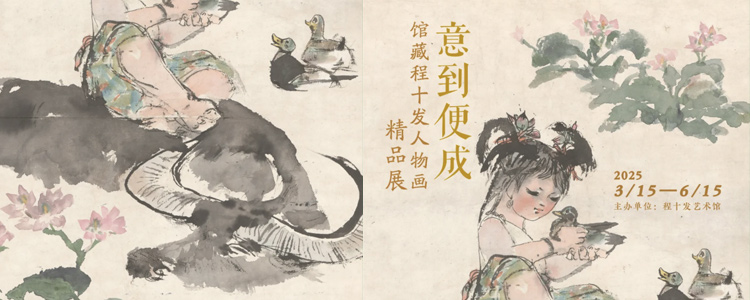 意到便成
馆藏程十发人物画
精品展
2025
3/15—6/15
主办单位：程十发艺术馆